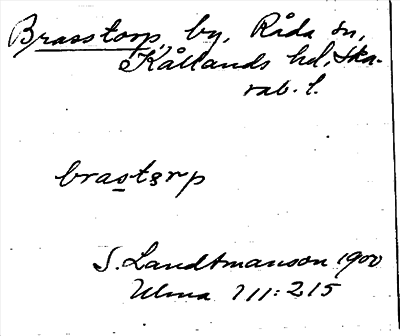 Brasstorp, by, Råda sn,
Kållands hd, Ska-
rab. l.
brastərp
S. Landtmanson 1900
Ulma 111:215